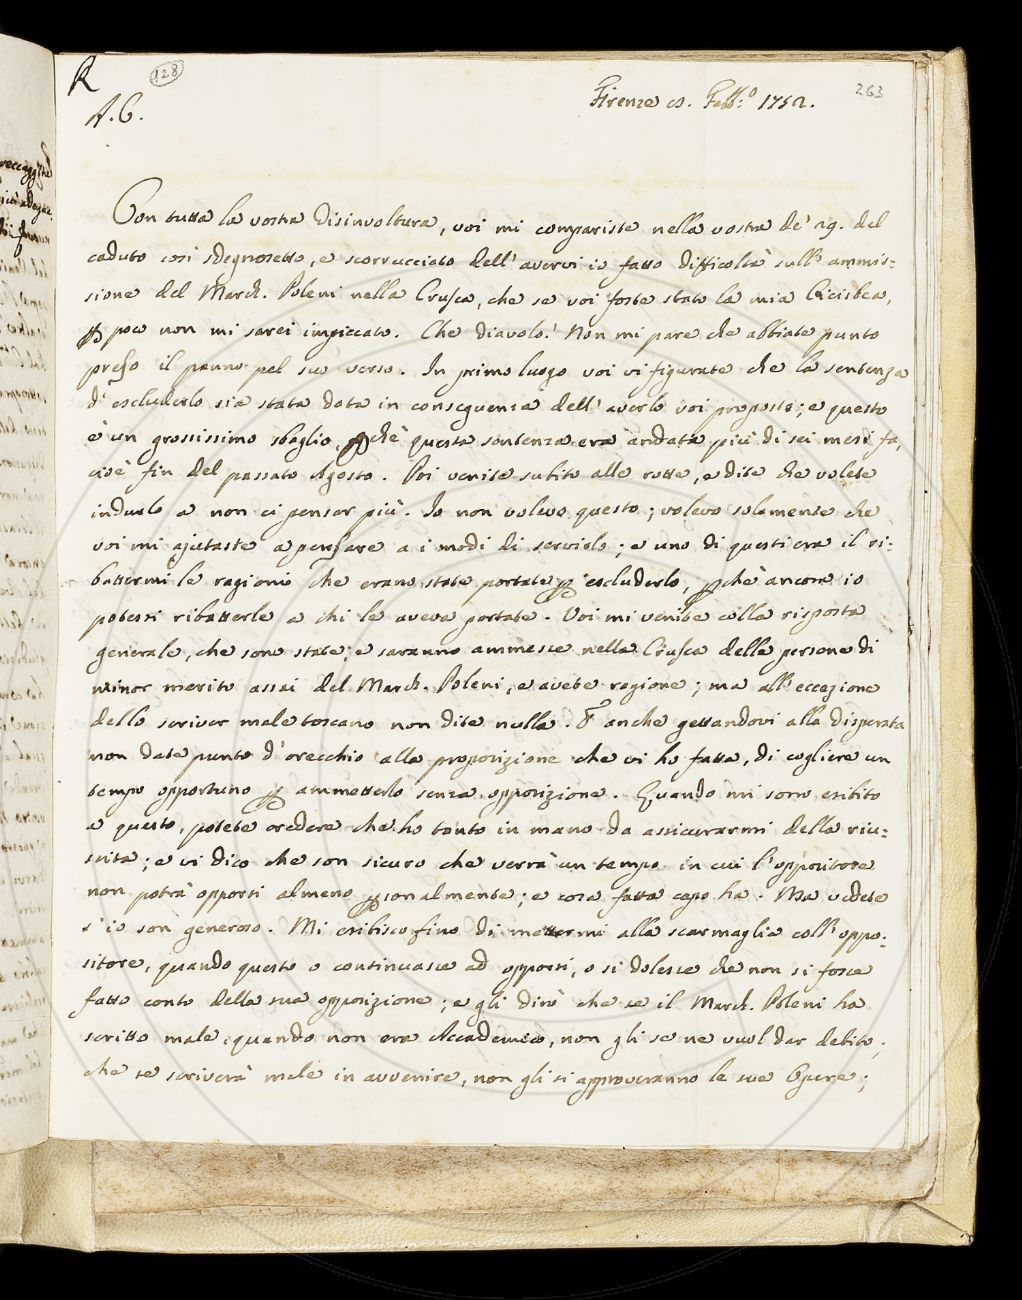 R
128
263
A. C.
Firenze 15. Febb.º 1752.
Con tutta la vostra disinvoltura, voi mi compariste nella vostra de' 29. del
caduto così sdegnosetto, e scorrucciato dell' avervi io fatto difficoltà sull' ammis:
sione del March. Poleni nella Crusca, che se voi foste stato la mia Cicisbea,
p poco non mi sarei impiccato. Che diavolo! Non mi pare che abbiate punto
preso il panno pel suo verso. In primo luogo voi vi figurate che la sentenza
d' escluderlo sia stata data in conseguenza dell' averlo voi proposto; e questo
è un grossissimo sbaglio, pchè questa sentenza era andata più di sei mesi fa,
cioè fin del passato Agosto. Poi venite subito alle rotte, e dite che volete
indurlo a non ci pensar più. Io non volevo questo; volevo solamente che
voi mi ajutaste a pensare a i modi di servirlo; e uno di questi era il ri:
battermi le ragioni che erano state portate p escluderlo, pchè ancora io
potessi ribatterle a chi le aveva portate. Voi mi venite colla risposta
generale, che sono state, e saranno ammesse nella Crusca delle persone di
minor merito assai del March. Poleni, e avete ragione; ma all' eccezione
dello scriver male toscano non dite nulla. E anche gettandovi alla disperata
non date punto d' orecchio alla proposizione che vi ho fatta, di cogliere un
tempo opportuno p ammetterlo senza opposizione. Quando mi sono esibito
a questo, potete credere che ho tanto in mano da assicurarmi della riu:
scita; e vi dico che son sicuro che verrà un tempo in cui l' oppositore
non potrà opporsi almeno psonalmente; e cosa fatta capo ha. Ma vedete
s' io son generoso. Mi esibisco fino di mettermi alla scarmaglia coll' oppo:
sitore, quando questo o continuasse ad opporsi, o si dolesse che non si fosse
fatto conto della sua opposizione; e gli dirò che se il March. Poleni ha
scritto male quando non era Accademico, non gli se ne vuol dar debito;
che se scriverà male in avvenire, non gli si approveranno le sue Opere;